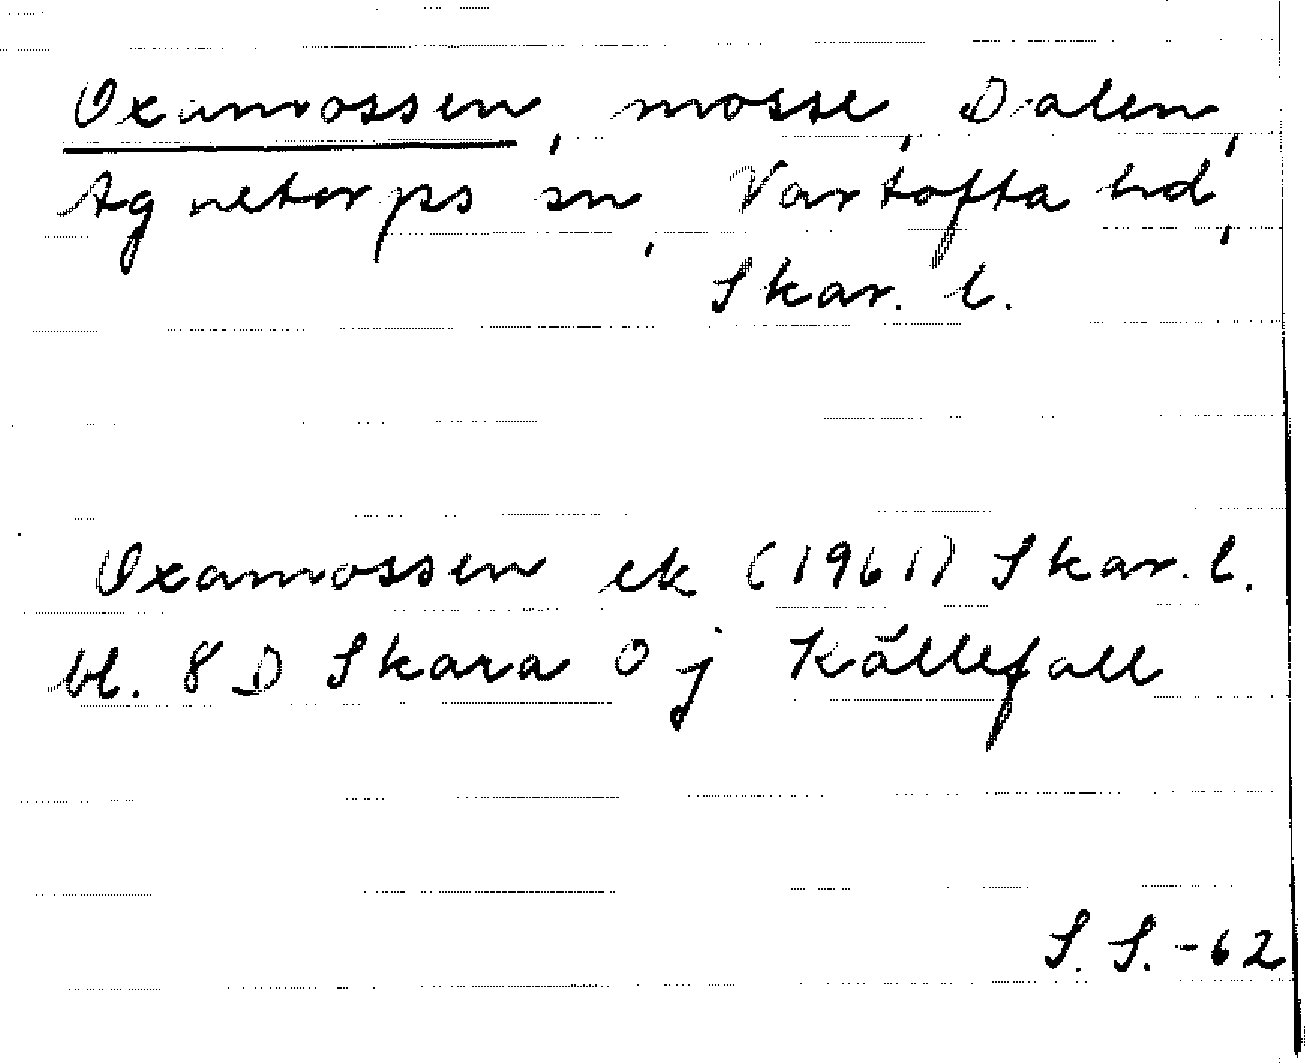 Oxamossen, mosse, Dalen,
Agnetorps sn, Vartofta hd,
Skar. l.
Oxamossen ek (1961) Skar. l.
bl. 8 D Skara 0 j Källefall
S. S. -62